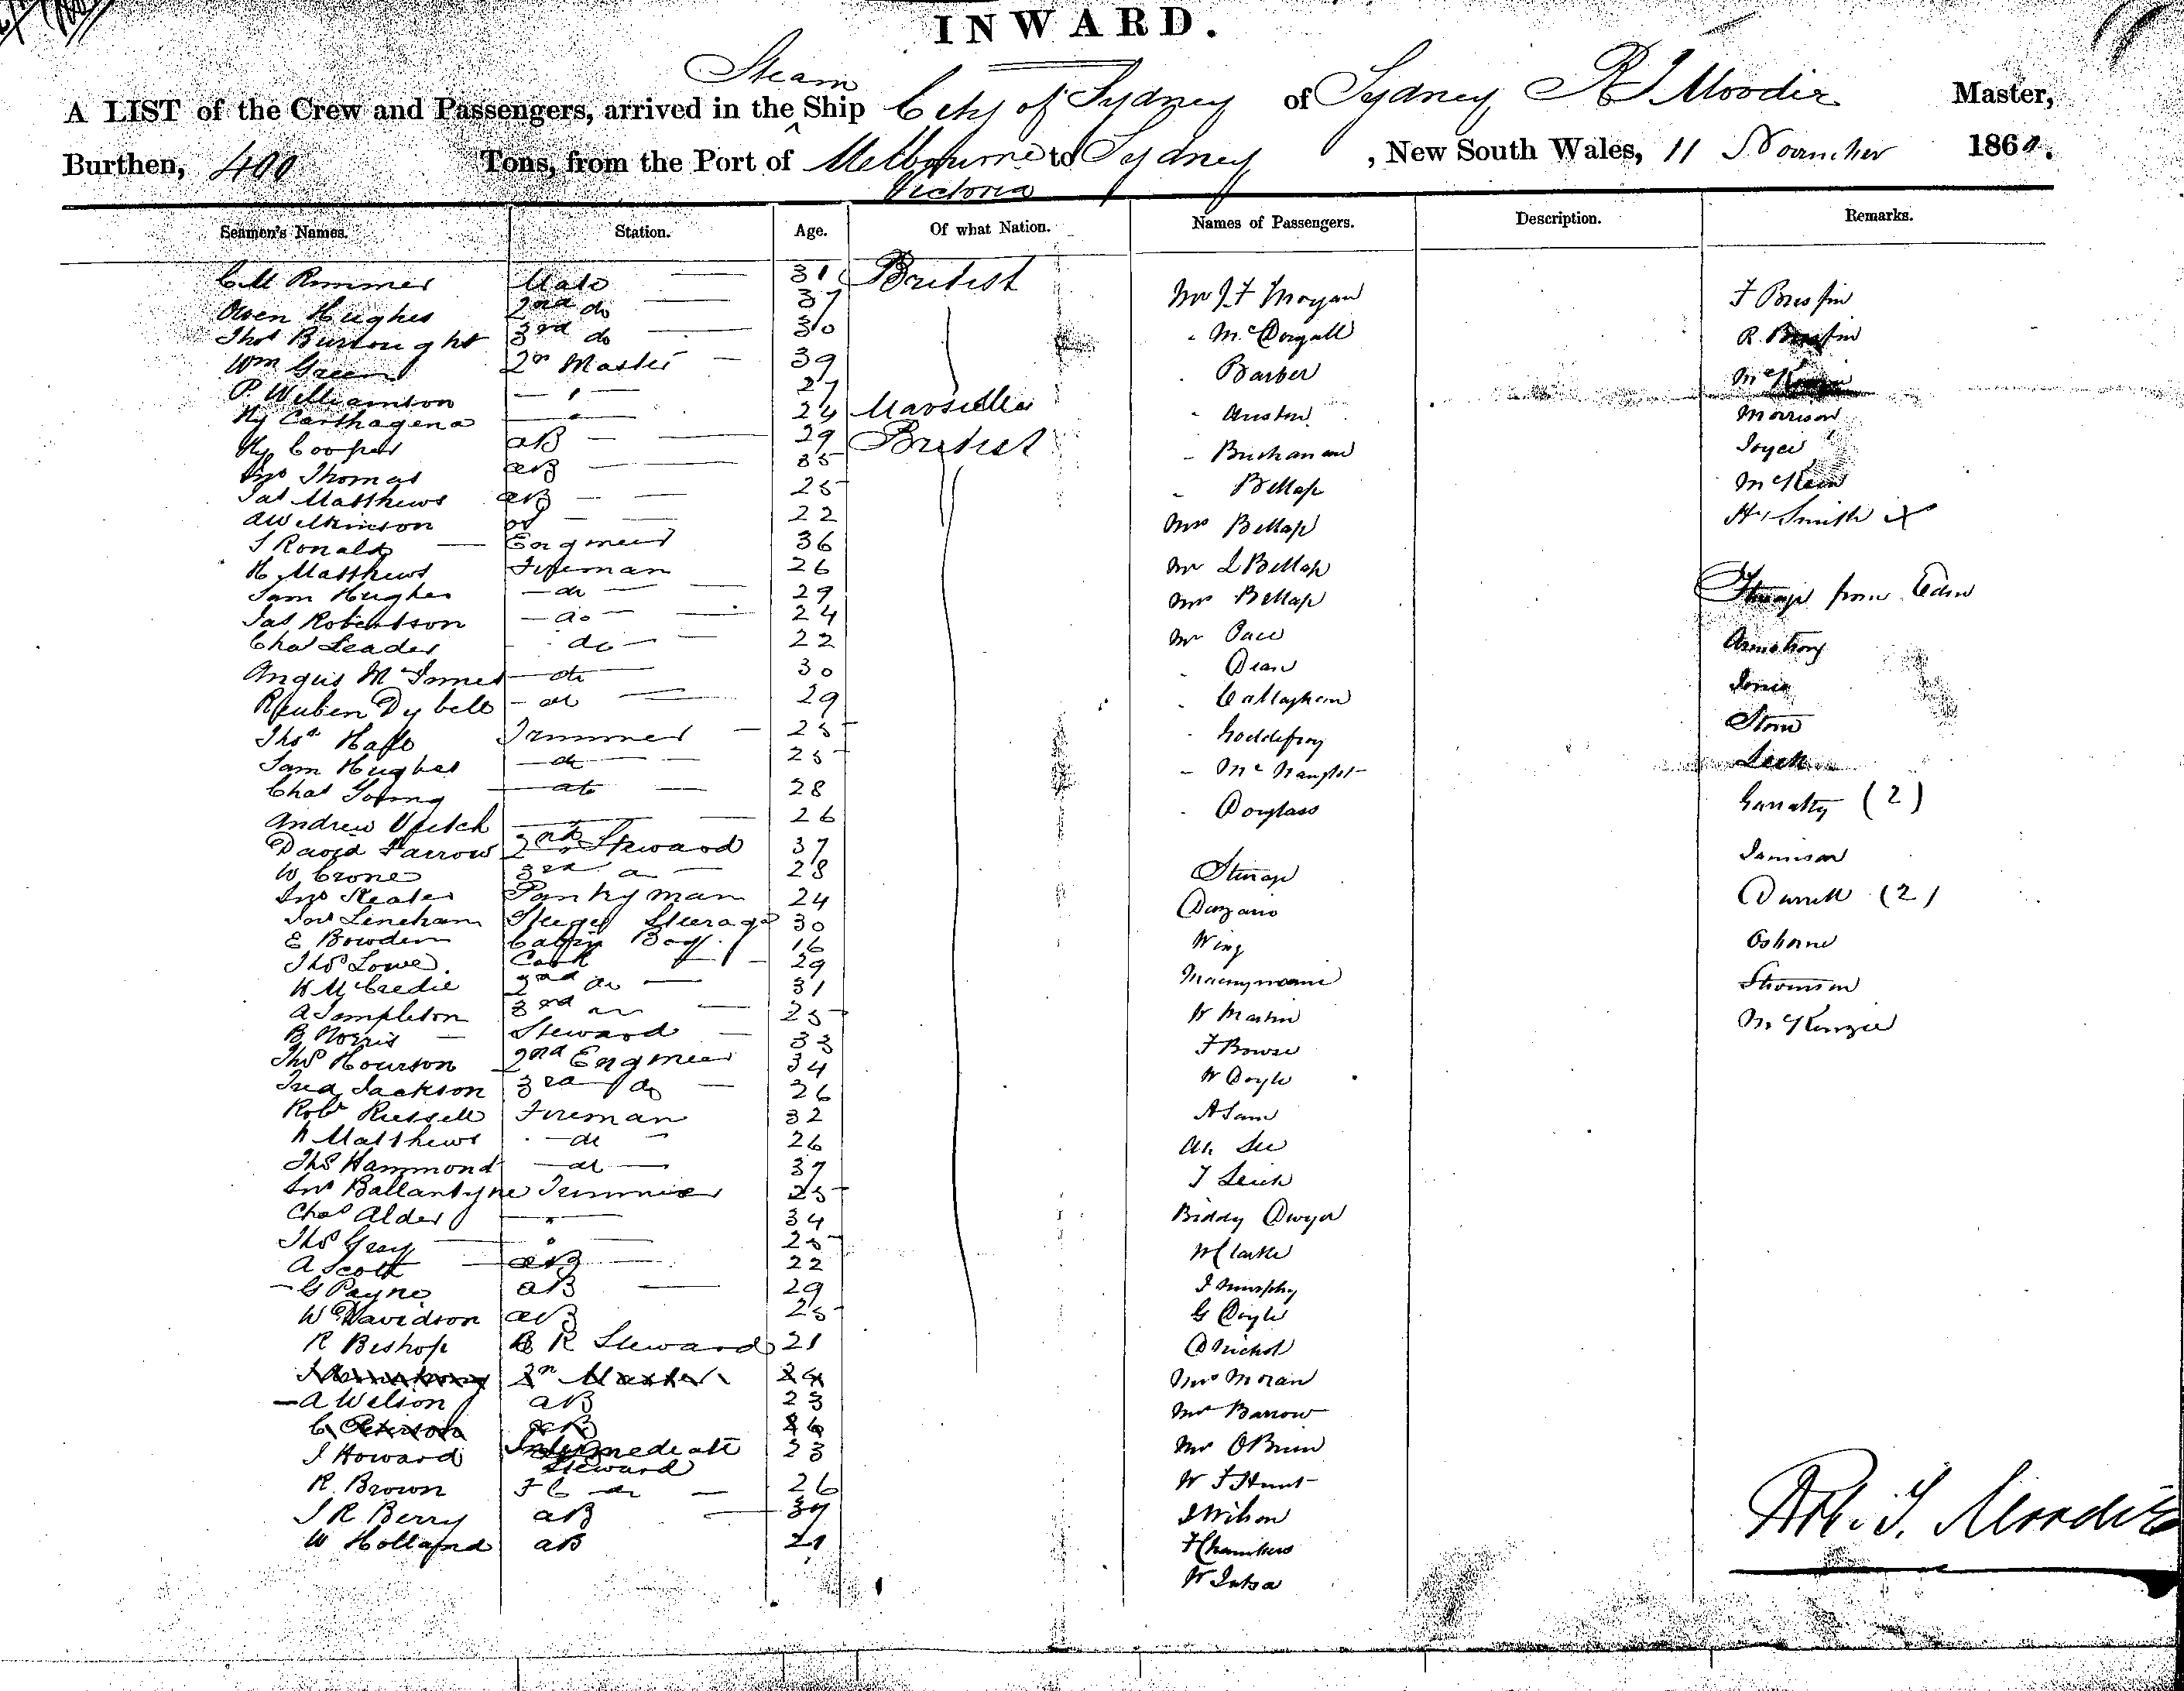 INWARD.
Steam
A LIST of the Crew and Passengers, arrived in the Ship City of Sydney of Sydney R T Moodie Master,
Burthen, 400 Tons, from the Port of Melbourne to Sydney, New South Wales, 11 November 186
Victoria
Seamen's Names. Station. Age. Of what Nation. Names of Passengers. Description. Remarks.
C M Rimmer Mate 31 British Mr J F Morgan
Owen Hughes 2nd do 37 " McDougall
Thos Burrought 3rd do 30 " Barber
Wm Green 2r Master 39 " Austin Morrison
P. Williamson " 27 " Buchanan Joyce
Hy Carthagena " 24 Marseilles " Bellap
Hy Cooper AB 29 British Mrs Bellap Hy Smith x
Jno Thomas AB 35 Mr L Bellap
Jas Matthews AB 25 Mrs Bellap Steerage from Eden
A Wilkinson OS 22 Mr Pace Armstrong
J Ronald Engineer 36 " Dean
H Matthews Fireman 26 " Callaghan Storm
Sam Hughes do 29 " Goddefroy
Jas Robertson do 24 " McNaught
Chas Leader do 22 " Douglass Garratty (2)
Angus McInnes do 30 Jamison
Reuben Dybell do 29 Steerage Durrell (2)
Thos Hall Trimmer 25 Osborne
Sam Hughes do 25 Wing Thomson
Chas Young do 28 McKenzie
Andrew Veitch 26 W Martin
David Farrow 2nd Steward 37 F Bowse
W Crone 3rd do 28 W Doyle
Jno Sleater Pantryman 24 A Sam
Jas Lineham Steward Steerage 30 Ah See
E Bowden Cabin Boy 16 T Leich
Thos Lowe Cook 29 Biddy Dwyer
W McCredie 2nd do 31 W Clarke
A Templeton 3rd do 25 J Murphy
B Norris Steward 33 G Doyle
Thos Hourson 2nd Engineer 34 D Nichol
Fred Jackson 3rd do 26 Mrs Moran
Robt Russell Fireman 32 Mr Barrow
H Matthews do 26 Mr OBrien
Thos Hammond do 37 W T Hunt
Jno Ballantyne Trimmer 25 J Wilson
Chas Alder " 34 F Chambers
Thos Gray " 25
A Scott AB 22
G Payne AB 29
W Davidson AB 25
R Bishop B R Steward 21
J Armstrong 2r Master 24
A Wilson AB 23
C Peterson AB 26
J Howard Intermediate Steward 23
R. Brown F C do 26
J R Berry AB 37
W Holland AB 21
Robt. T. Moodie